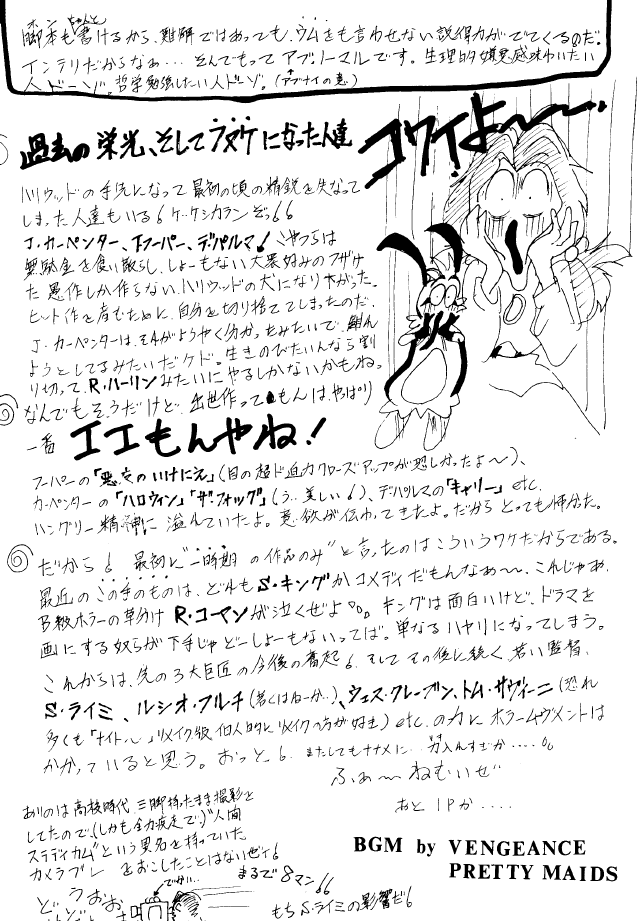 脚本も書けるから、難解ではあっても、ウムをも言わせない説得力がでてくるのだ。
インテリだからなぁ…そんでもってアブノーマルです。生理的嫌悪感味わいたい
人ドーゾ。哲学勉強したい人ドーゾ。(アブナイの意)
コワイよ〜〜
過去の栄光、そしてフヌケになった人達
ハリウッドの手先になって最初の頃の精鋭を失なって
しまった人達もいる!ケ・ケシカランぞっ!!
J.カーペンター、T.フーパー、デ・パルマ!こやつらは
無駄金を食い散らし、しょーもない大衆好みのフザけ
た悪作しか作らない、ハリウッドの犬になり下がった。
ヒット作を産むために、自分を切り捨ててしまったのだ。
J.カーペンターは、それがようやく分かったみたいで、
ようとしてるみたいだケド。生きのびたいんなら割
り切って R.ハーリンみたいにやるしかないかもね。
なんでもそうだけど、出世作ってもんは、やっぱり
一番 エエもんやね!
フーパーの「悪魔のいけにえ」(目の超ド迫力クローズアップが恐しかったよ〜)、
カーペンターの「ハロウィン」「ザ・フォッグ」(う…美しい!)、デ・パルマの「キャリー」etc.
ハングリー精神に溢れていたよ。意欲が伝わってきたよ。だからとっても好きだった。
だから! 最初に“一時期の作品のみ”と言ったのはこういうワケだからである。
最近のこの手のものは、どれもS・キングかコメディだもんなぁ〜。これじゃあ、
B級ホラーの草分け R.コーマンが泣くぜよ。キングは面白いけど、ドラマを
画にする奴らが下手じゃどーしょーもないってば。単なるハヤリになってしまう。
これからは、先の3大巨匠の今後の奮起!、そしてその後に続く、若い監督、
S・ライミ、ルシオ・フルチ(若くはねーか…)、ウェス・クレーブン、トム・サヴィーニ(恐れ
多くも「ナイト〜」リメイク版 個人的にリメイクの方が好き)etc.の力にホラームヴメントは
かかっていると思う。おっと!、またしてもナナメに…力入んすぎか…..。
ふぁ〜ねむいぜ
あと1Pか....
ありのは高校時代、三脚持ったまま撮影と
してたので、(しかも全力疾走で)“人間
ステディカム”という異名を持っていた。
カメラブレをおこしたことはないぜィ!
まるで8マン!!
どうおお
もち S・ライミの影響だ!
BGM by VENGEANCE
PRETTY MAIDS